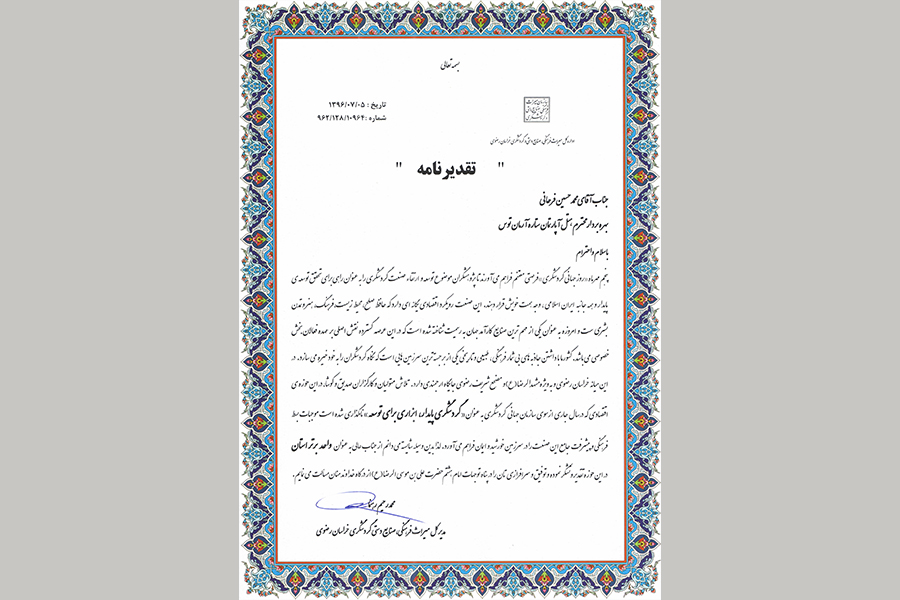 بسمه تعالی
تاریخ : ۱۳۹۶/۰۷/۰۵
شماره : ۹۶۲/۱۲۸/۱۰۹۶۴
اداره کل میراث فرهنگی، صنایع دستی و گردشگری خراسان رضوی
" تقدیرنامه "
جناب آقای محمد حسین فرحانی
بهره بردار محترم هتل آپارتمان ستاره آرمان توس
باسلام و احترام
پنجم مهرماه، روز جهانی گردشگری، فرصتی مغتنم فراهم می آورد تا پژوهشگران موضوع توسعه و ارتقاء صنعت گردشگری را به عنوان راهی برای تحقق توسعه ی
پایدار و همه جانبه ایران اسلامی، وجهه همت خویش قرار دهند. این صنعت رویکرد اقتصادی یگانه ای دارد که حافظ صلح، محیط زیست، فرهنگ، هنر و تمدن
بشری ست و امروزه به عنوان یکی از مهم ترین صنایع کارآمد جهان به رسمیت شناخته شده است که در این عرصه گسترده نقش اصلی بر عهده فعالان، بخش
خصوصی می باشد. کشور ما با داشتن جاذبه های بی شمار فرهنگی، طبیعی و تاریخی یکی از برجسته ترین سرزمین هایی است که نگاه گردشگران را به خود خیره می سازد. در
این میانه خراسان رضوی و به ویژه مشهدالرضا(ع) و مضجع شریف رضوی جایگاه ارجمندی دارد. تلاش متولیان و کارگزاران صدیق و کوشا در این حوزه ی
اقتصادی که در سال جاری از سوی سازمان جهانی گردشگری به عنوان « گردشگری پایدار، ابزاری برای توسعه » نامگذاری شده است موجبات بسط
فرهنگی و پیشرفت جامع این صنعت را در سرزمین خورشید و ایمان فراهم می آورد. لذا بدین وسیله شایسته می دانم از جناب عالی به عنوان واحد برتر استان
در این حوزه تقدیر و تشکر نموده و توفیق و سرافرازی تان را در پناه توجهات امام هشتم حضرت علی بن موسی الرضا(ع) از درگاه خداوند منان مسالت می نمایم.
مدیر کل میراث فرهنگی، صنایع دستی و گردشگری خراسان رضوی